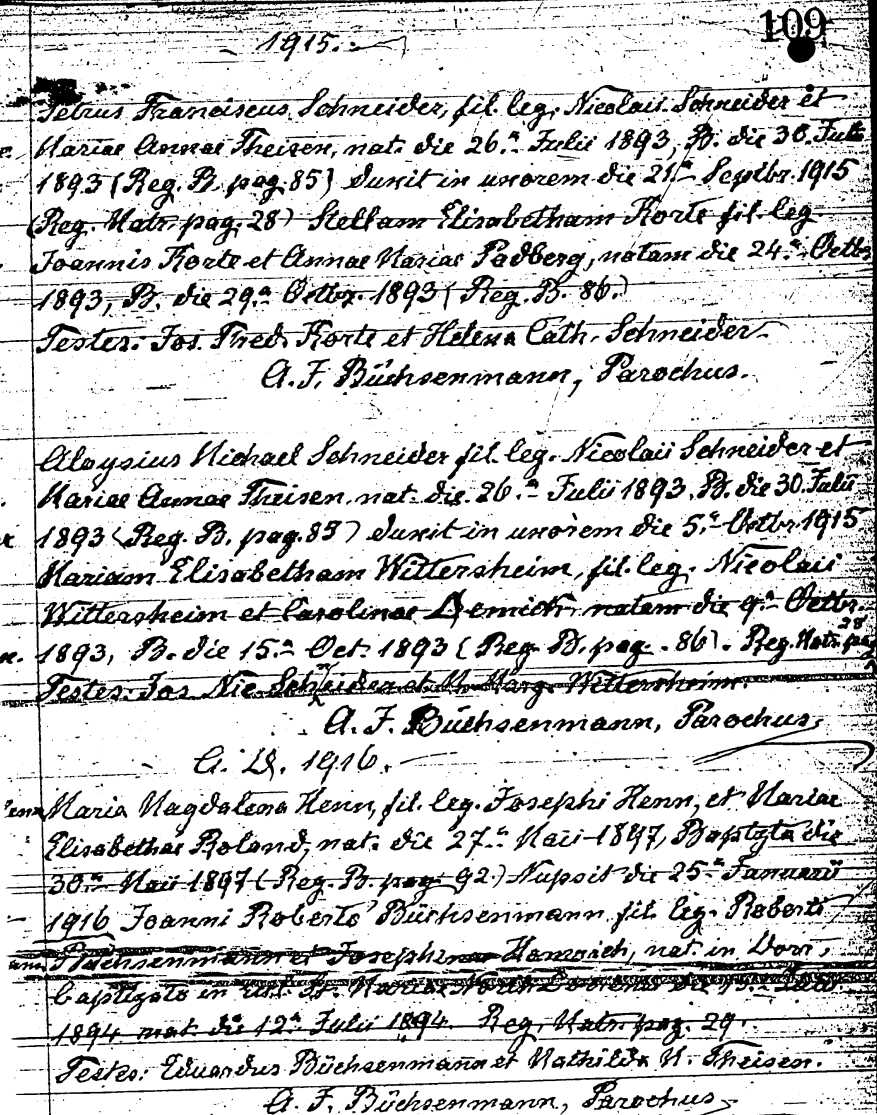 109
1915.
Petrus Franciscus Schneider, fil. leg. Nicolaii Schneider et
Mariae Annae Theisen, nat. die 26.a Julii 1893, B. die 30. Julii
1893 (Reg. B. pag. 85) duxit in uxorem die 21.a Septbr. 1915
(Reg. Matr. pag. 28) Stellam Elisabetham Korte fil. leg.
Joannis Korte et Annae Mariae Padberg, natam die 24.a Octbr.
1893, B. die 29.a Octbr. 1893 (Reg. B. 86.)
Testes: Jos. Theo. Korte et Helena Cath. Schneider
A. F. Büchsenmann, Parochus.
Aloysius Michael Schneider fil. leg. Nicolaii Schneider et
Mariae Annae Theisen, nat. die. 26.a Julii 1893, B. die 30. Julii
1893 (Reg. B. pag. 85) duxit in uxorem die 5.a Octbr. 1915
Mariam Elisabetham Wittersheim, fil. leg. Nicolaii
Wittersheim et Carolinae natam die 9.a Octbr.
1893, B. die 15.a Oct. 1893 (Reg. B. pag. 86). Reg. Matr. pag 28
Testes: Jos Nic. Schneider et M. Marg. Wittersheim.
A. F. Büchsenmann, Parochus.
A. D. 1916.
Maria Magdalena Henn, fil. leg. Josephi Henn, et Mariae
Elisabethae Roland, nat. die 27.a Maii 1897, Baptzta die
30.a Maii 1897 (Reg. B. pag. 92.) Nupsit die 25.a Januarii
1916 Joanni Roberto Büchsenmann fil. leg. Roberti
Büchsenmann et Josephinae nat in
baptizato in
1894 nat. die 12.a Julii 1894. Reg. Matr. pag. 29.
Testes: Eduardus Büchsenmann et Mathilda M. Theisen.
A. F. Büchsenmann, Parochus